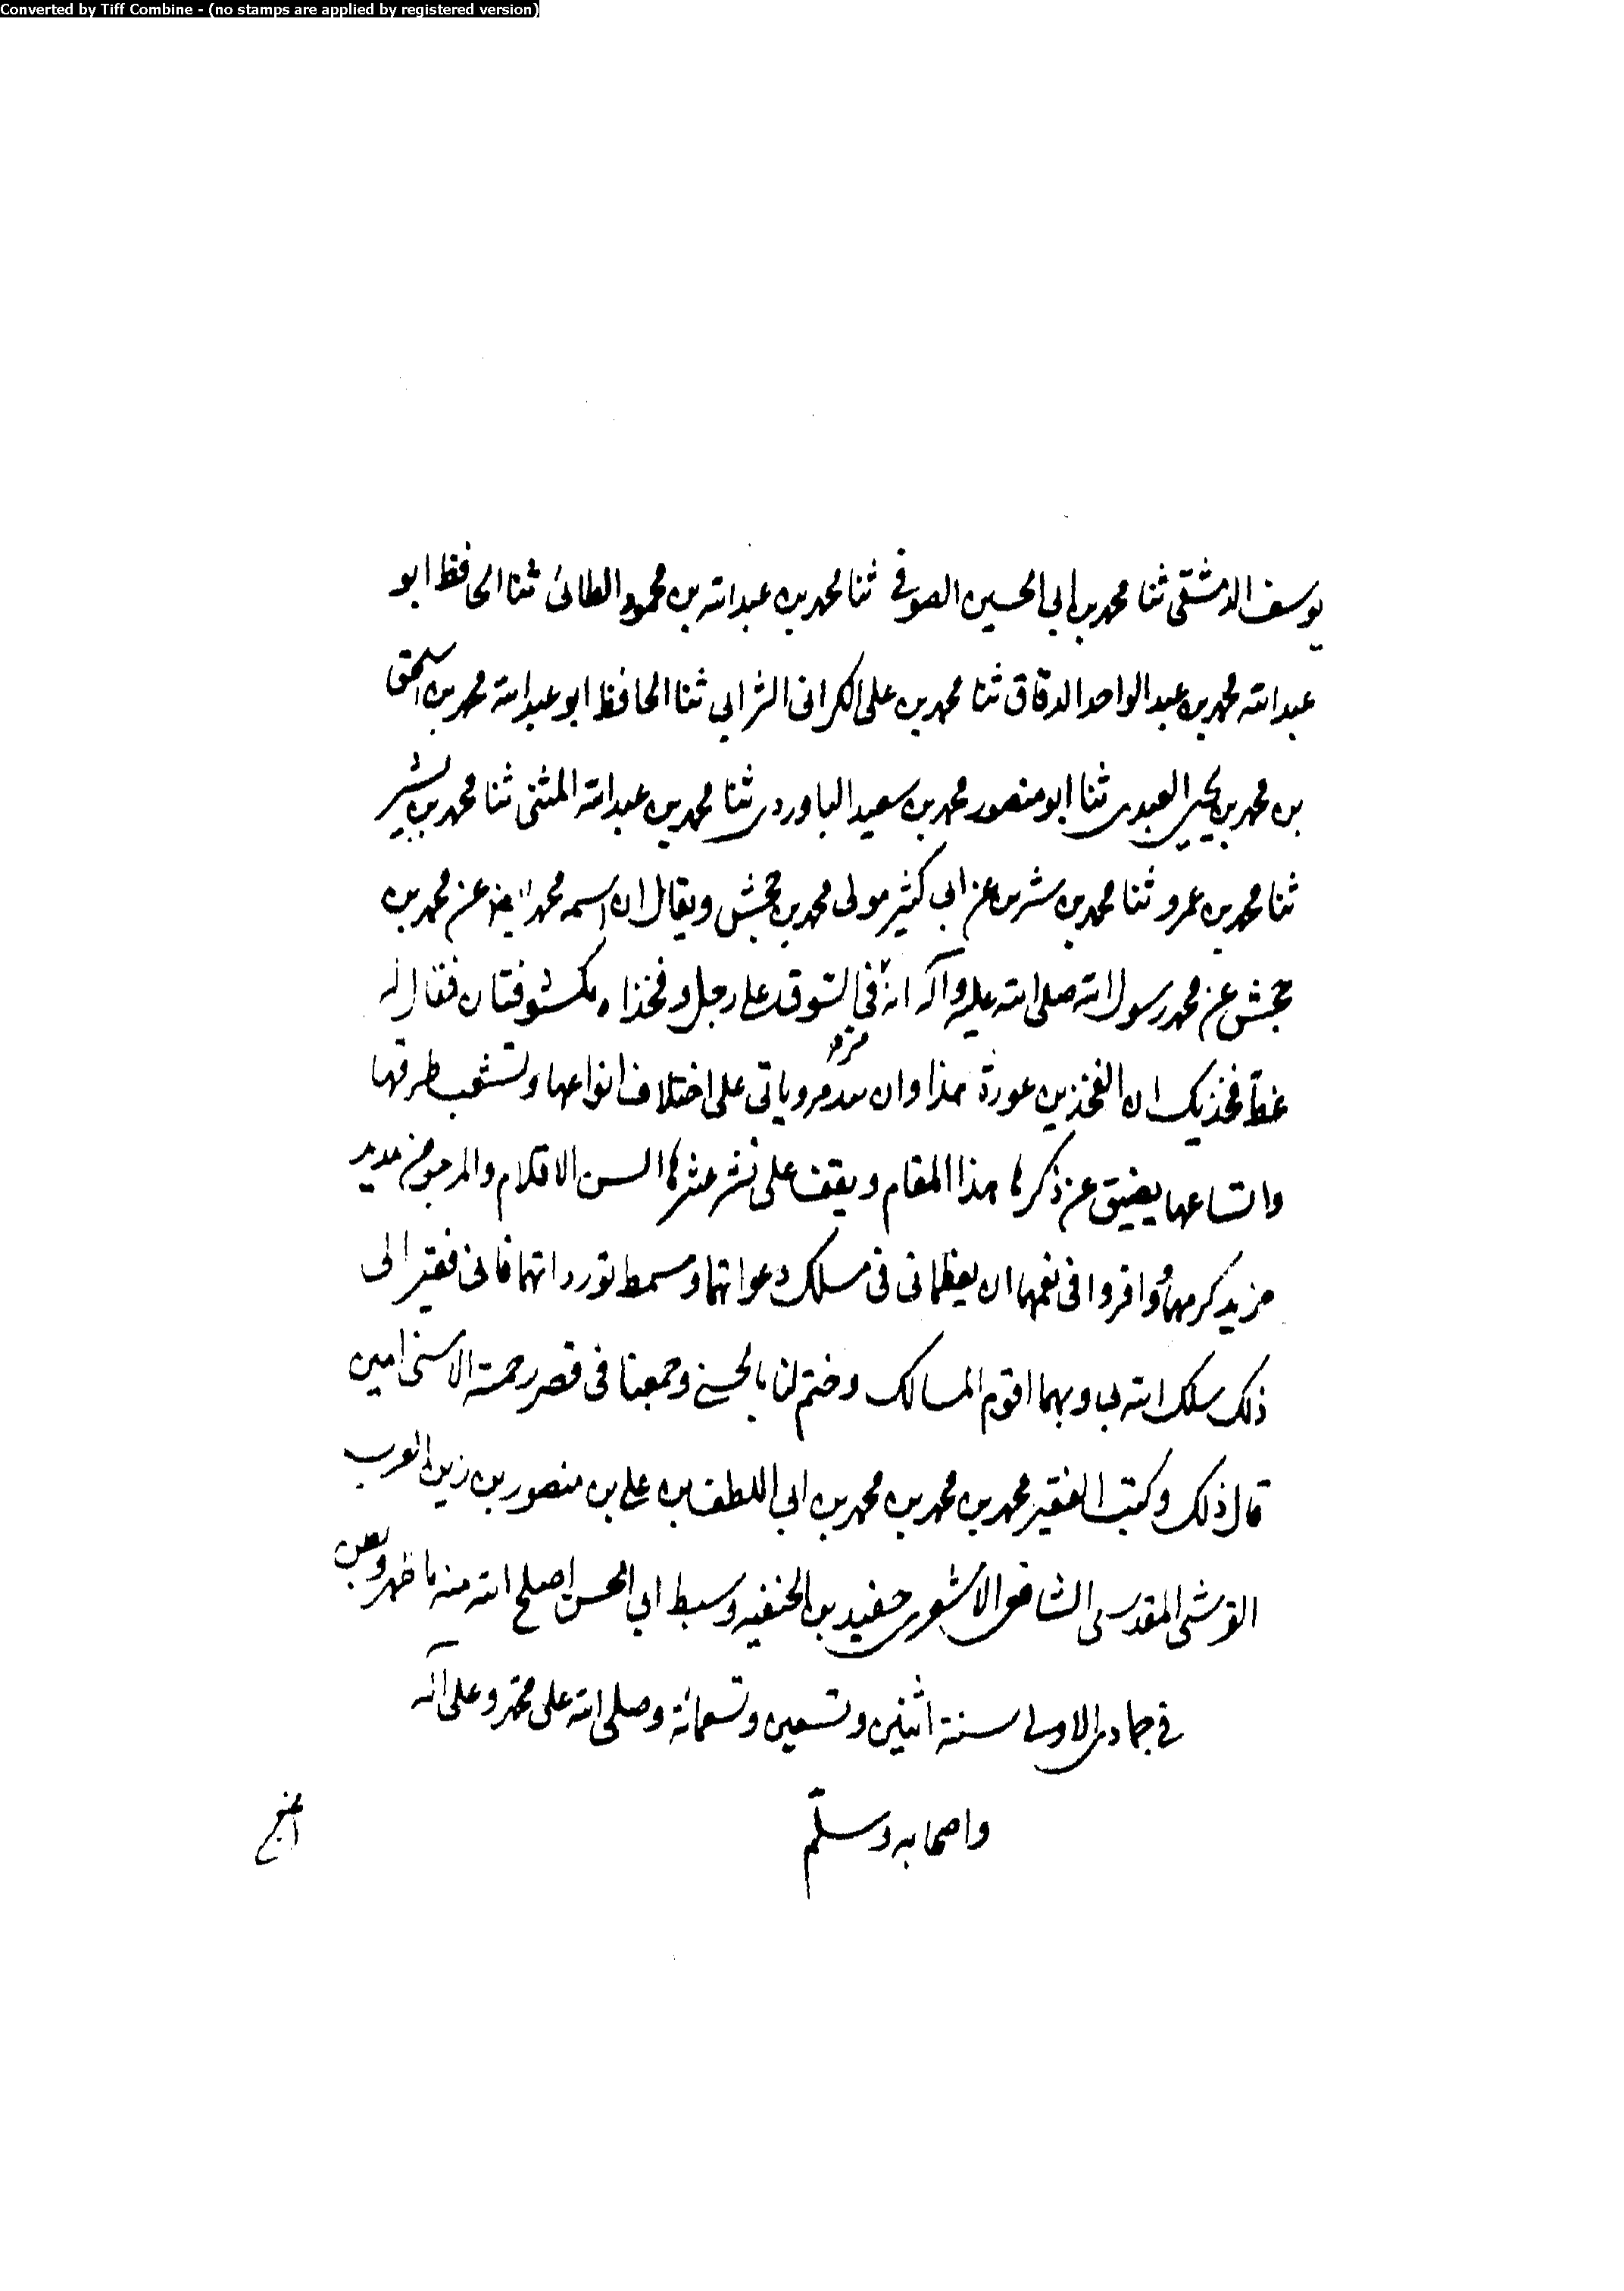 Converted by Tiff Combine - (no stamps are applied by registered version)
يوسف الدمشقى ثنا محمد بن ابى الحسين الصوفى ثنا محمد بن عبد الله بن محمود الطائى ثنا الحافظ ابو
عبد الله محمد بن عبد الواحد الدقاق ثنا محمد بن على الكرانى الشرابى ثنا الحافظ ابو عبد الله محمد بن اسحق
بن محمد بن يحيى العبدى ثنا ابو منصور محمد بن سعيد الباوردى ثنا محمد بن عبد الله المثنى ثنا محمد بن بشير
ثنا محمد بن عمرو ثنا محمد بن سيرين عن ابى كثير مولى محمد بن جحش ويقال ان اسمه محمد ايضا عن محمد بن
جحش عن محمد رسول الله صلى الله عليه وآله انه فى السوق على رجل وفخذاه مكشوفتان فقال له
غط فخذيك ان الفخذين عورة هذا وان سرد مروياتى على اختلاف انواعها وتشعب طرقها
واتساعها يضيق عن ذكرها هذا المقام ويقف على نشر عشرها السن الاقلام والمرجو من مديد
مزيد كرمهما وافر وافى نعمهما ان ينظمانى فى مسلك دعواتهما وسمط توردداتهما فانى فقير الى
ذلك سلك الله بى وبهما اقوم المسالك وختم لنا بالحسنى وجمعنا فى قصر رحمته الاسنى امين
قال ذلك وكتبه الفقير محمد بن محمد بن محمد بن ابى اللطف بن على بن منصور بن زين العرب
القرشى المقدسى الشافعى الاشعرى حفيد بن الحنفيه وسبط ابى الحسن اصلح الله منه ما ظهر وبطن
فى جمادى الاولى سنة اثنين وتسعين وتسعمائة وصلى الله على محمد وعلى آله
واصحابه وسلم